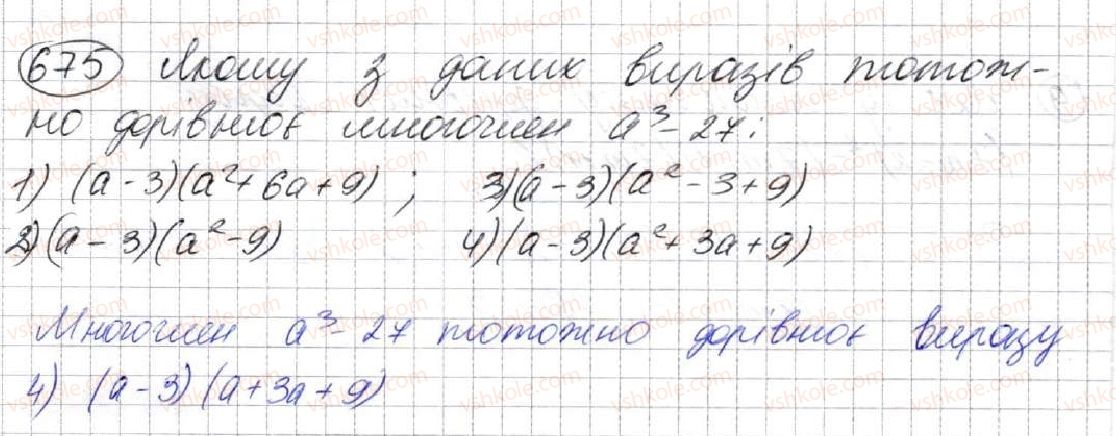 675 Якому з даних виразів тотож-
но дорівнює многочлен a³-27:
1) (a-3)(a²+6a+9); 3)(a-3)(a²-3+9)
2)(a-3)(a²-9) 4)(a-3)(a²+3a+9)
Многочлен a³-27 тотожно дорівнює виразу
4) (a-3)(a+3a+9)